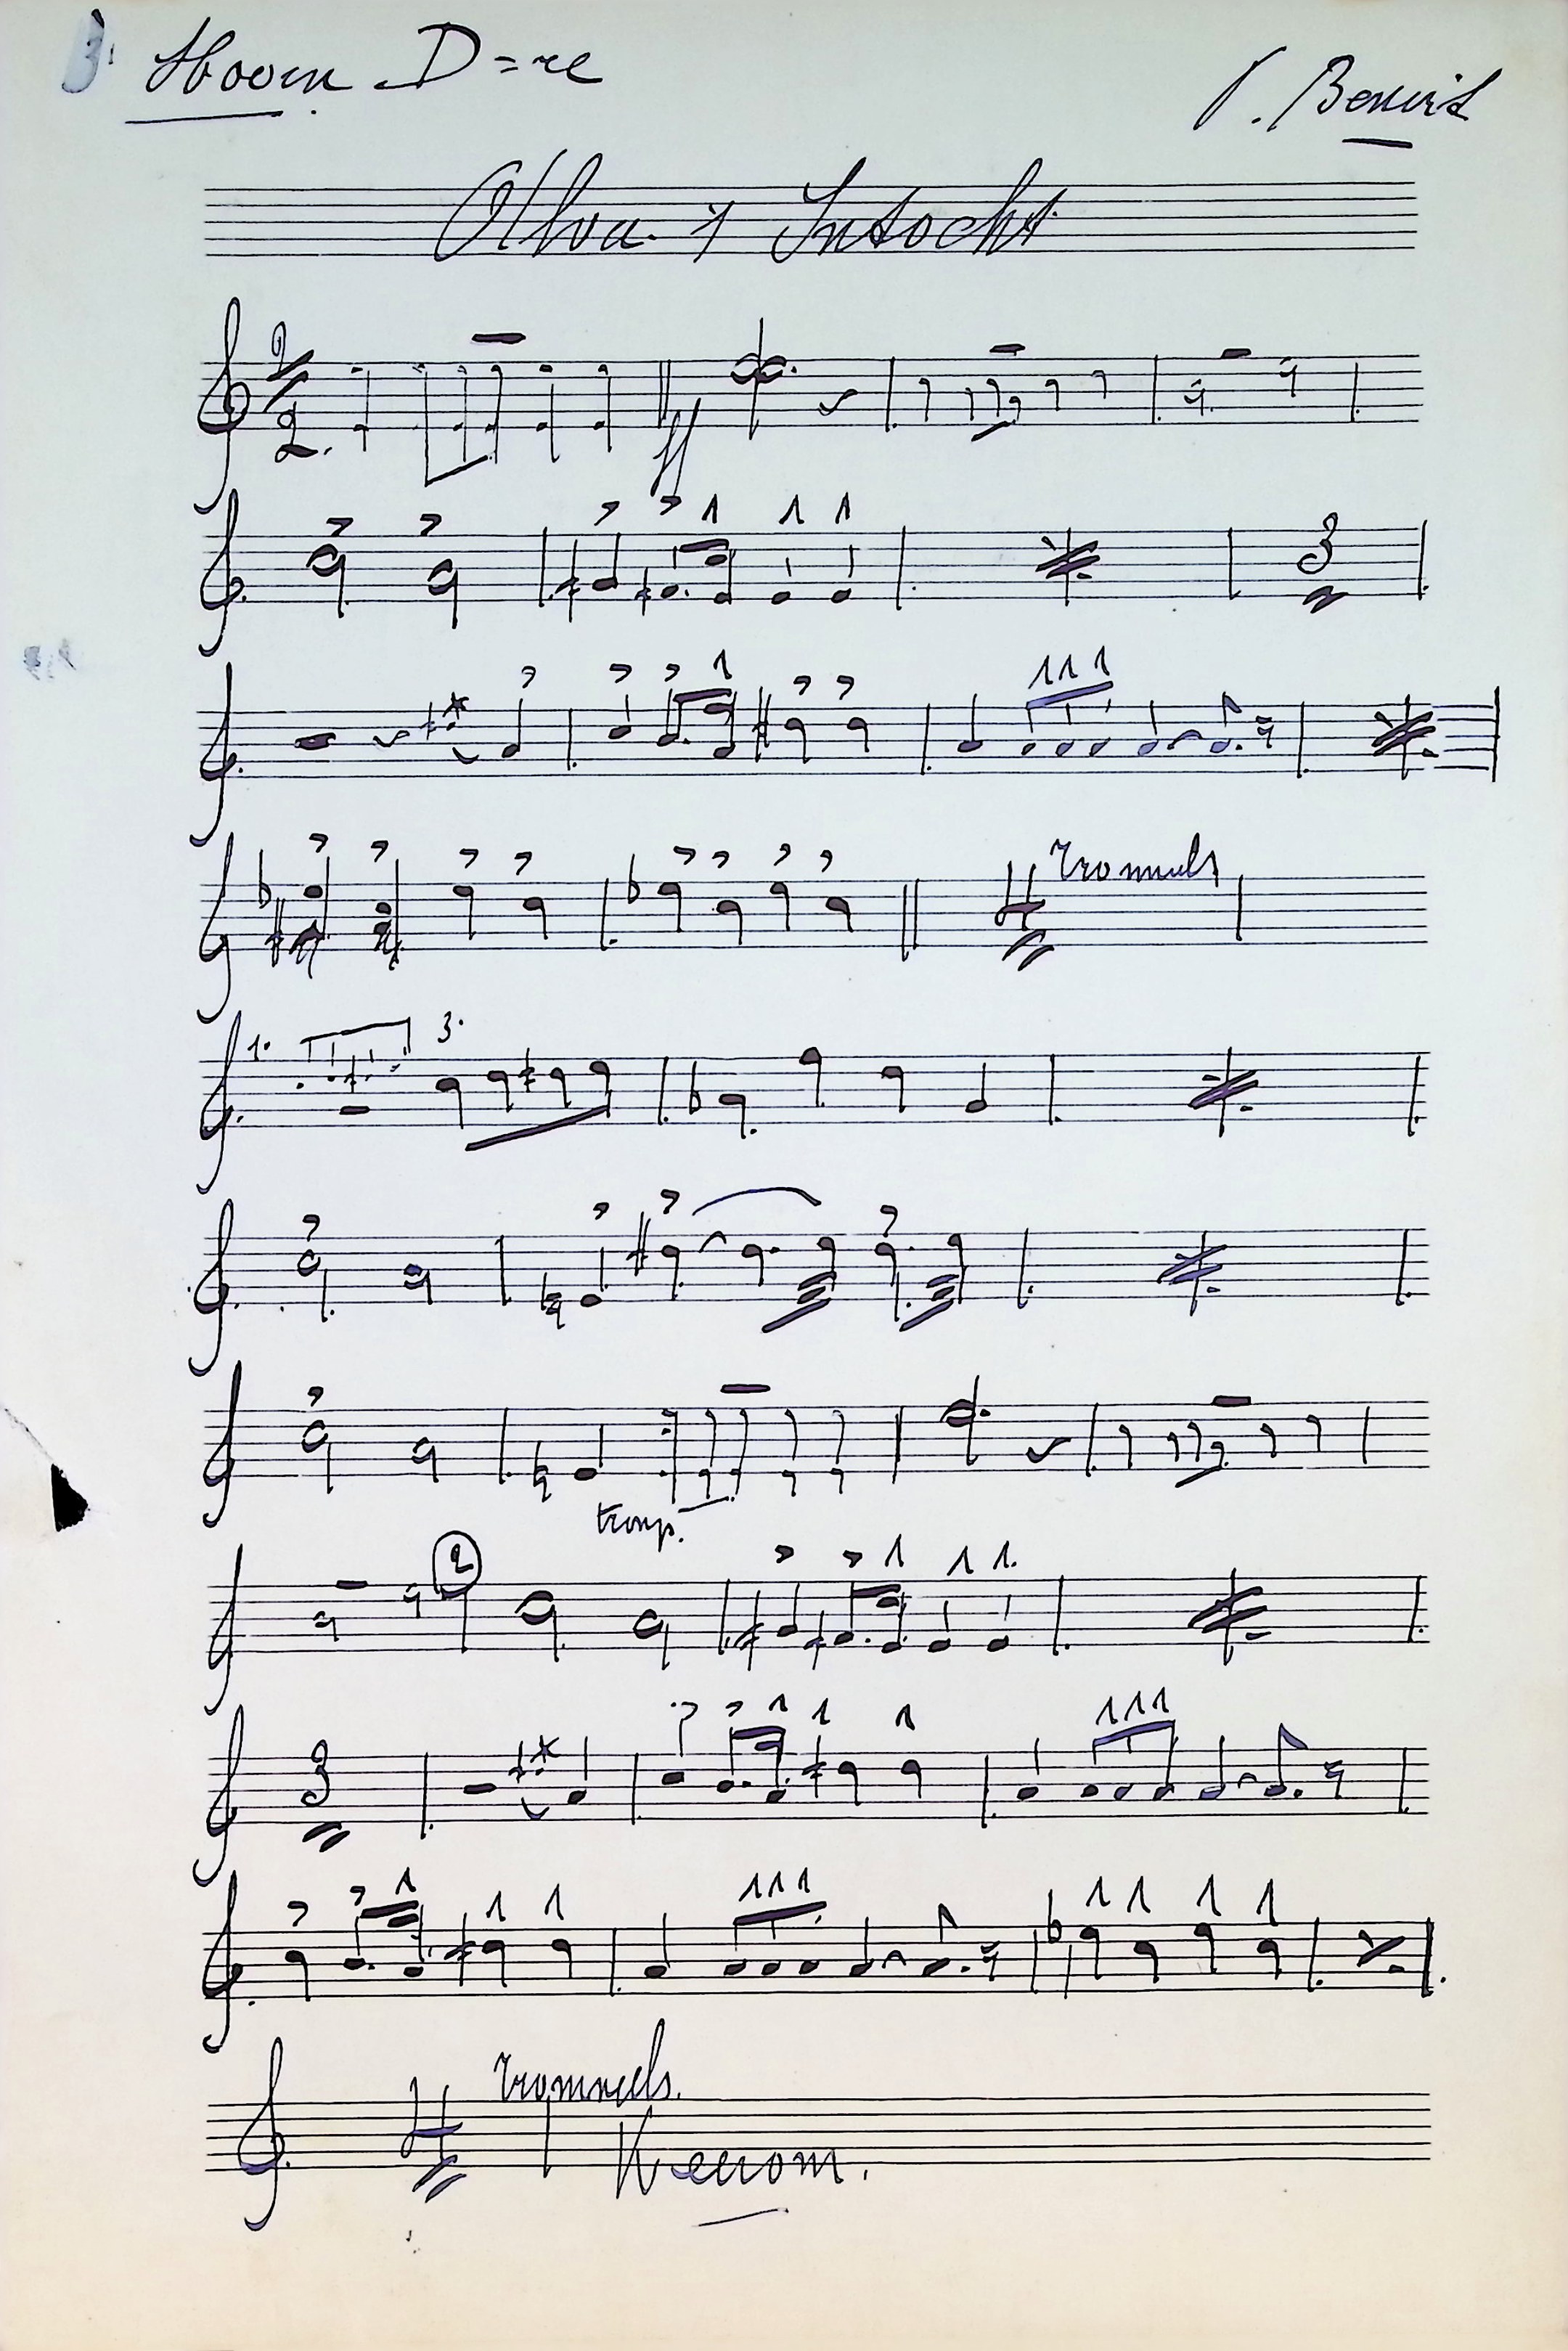 3. Hoorn D=re
P. Benoit
Alva's Intocht
2
2.
ff
3
Trommels
4
1. 3.
tromp.
2
3
Trommels.
4
Keerom.